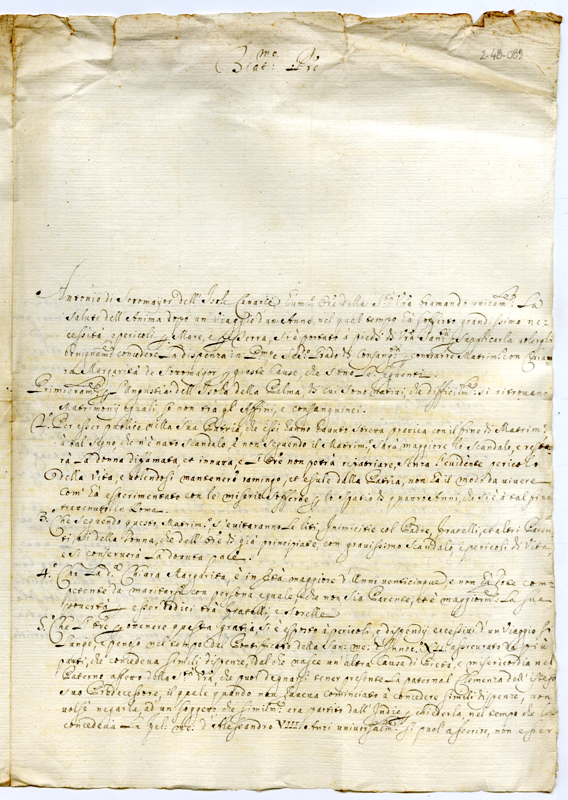 2-48-089
Beat:mo Pre
Antonio di Sotomayor dell'Isole Canarie humil.e Ore della S.tà V.ra bramando unicam.te La
Salute dell'Anima dopo un Viaggio d'un Anno, nel qual tempo hà sofferto grandissime ne-
cessità e pericoli p Mare, e p Terra, si è portato à piedi di V.ra San.tà p supplicarla voler gli
benignam.te concedere La dispenza in di Grado di Consang.tà p contrarre Matrim.o con Chia-
ra Margarità di Sotomayor p queste Cause, che sono Le seguenti.
Primieram.te p l'Angustia dell'Isola della Palma, di cui sono nativi, che difficilm.te si ritrovano
Matrimonij equali, se non tra gli Affini, e Consanguinei.
2.o Per esser publico nella sua Patria che essi hanno havuto stretta pratica con il fine di Matrim.o
à tal segno che n'è nato scandalo, e non seguendo il Matrim.o sarà maggiore lo scandalo, e reste-
rà La donna diffamata, et innuta, e l'Ore non potrà repatriare, senza evidente pericolo
della Vita, e volendosi mantenere ramingo, et esule dalla Patria, non hà il modo da vivere
Com'hà esperimentato con le miserie sofferte p lo spatio di quattro Anni, che si è tal fine
trattenuto in Roma.
3. Che seguendo questo Matrim.o s'evitaranno Le liti, Inimicitie col Padre, Fratelli, et altri Paren-
ti, sì della Donna, che dell'Ore di già principiate, con gravissimo scandalo, e pericoli di Vita,
e si conserverà La dovuta pace.
4.o Che La d.a Chiara Margarita, è in Età maggiore d'Anni venticinque, e non hà dote com-
petente da maritarsi con persona equale, che non sia Parente, et è maggiorm.te La sua
povertà p esser tredici trà fratelli, e sorelle
5.o Che l'Ore p ottenere questa gratia, si è esposto à pericoli, e dispendij eccessivi d'un Viaggio sì
Lungo, e penoso nel tempo del Pontificato della San: me: d'Innoc. XII assicurato da più
parti, che concedeva simili dispenze, dal che nasce un'altra Causa di Pietà, e misericordia nel
Paterno affetto della S.tà V.ra, che può degnarsi tener presente La paternal Clemenza dell'istesso
suo Predecessore, il quale quando non haveva cominciato à concedere simili dispenze, non
volse negarla, ad un soggetto che similm.te era partito dall'Indie p chiederla, nel tempo che le
concedeva La feli: me: d'Alessandro VIII e anzi universalm.te si può asserire, non esser